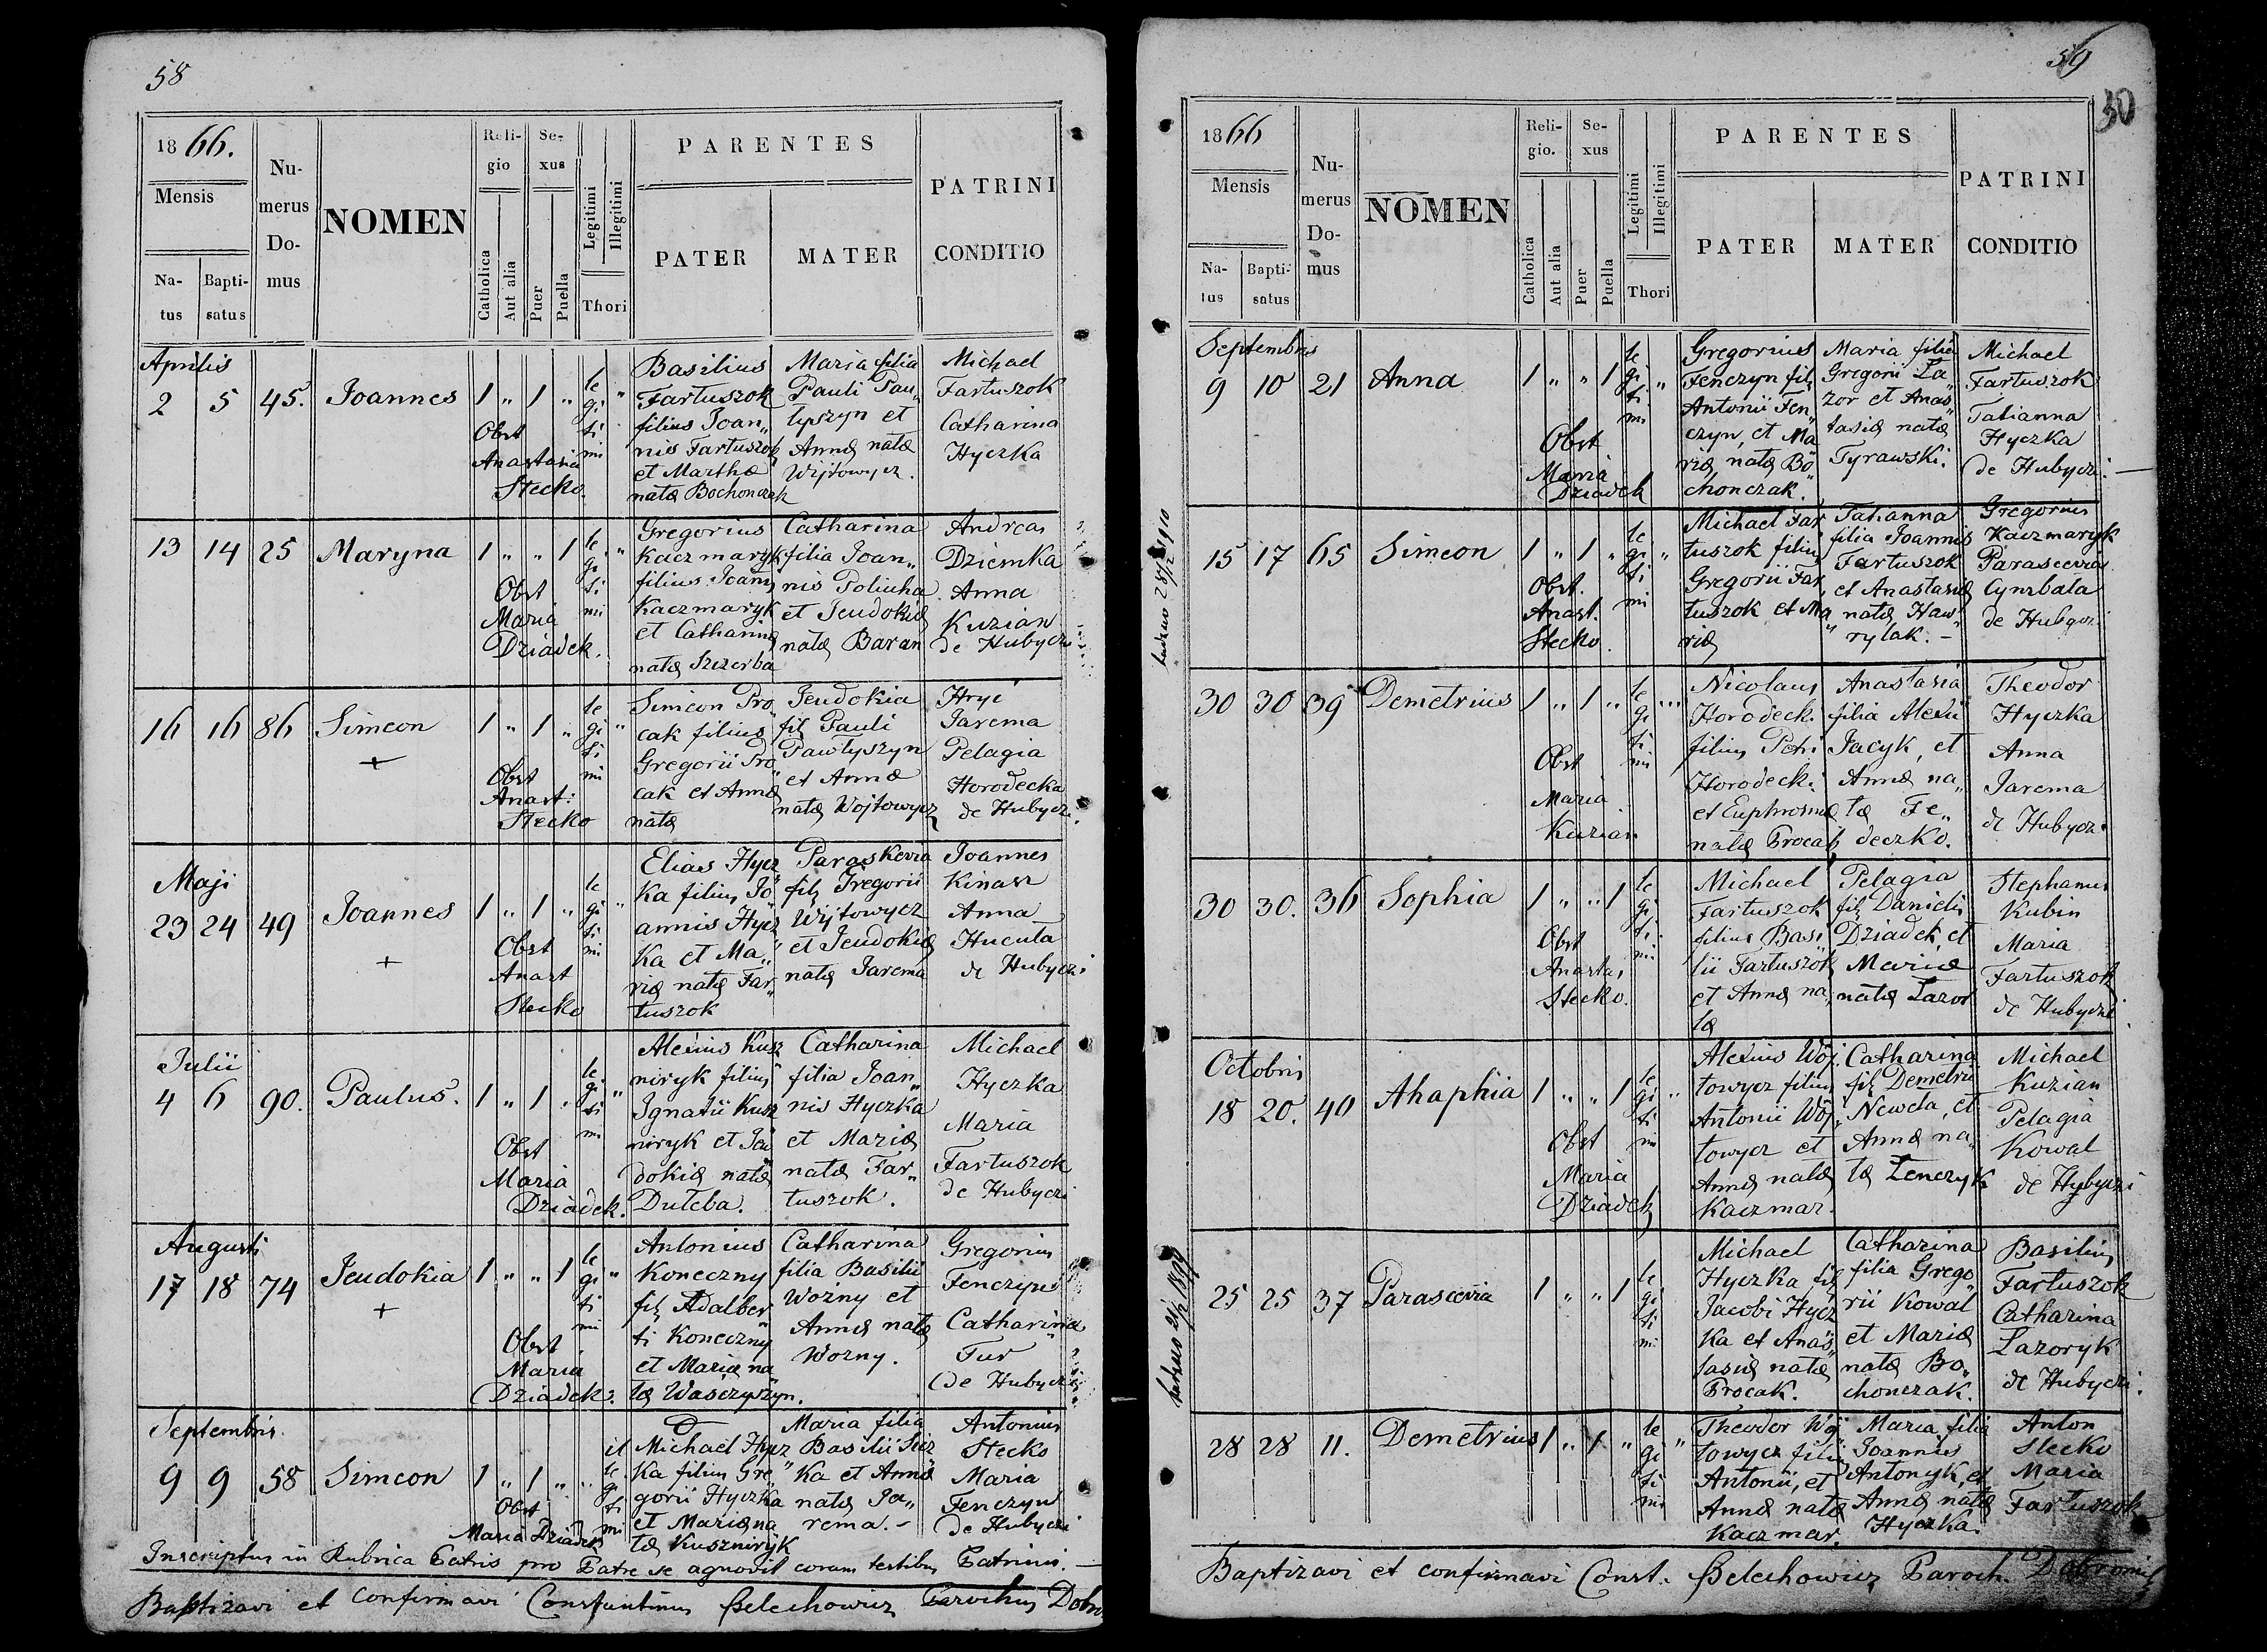 58
1866.
Mensis
Na-
tus
Bapti-
satus
Nu-
merus
Do-
mus
NOMEN
Reli-
gio
Catholica
Aut alia
Se-
xus
Puer
Puella
Legitimi
Illegitimi
Thori
PARENTES
PATER
MATER
PATRINI
CONDITIO
Aprilis
2 5 45. Joannes 1 " 1 "
le
gi "
ti
mi
Obst
Anastasia
Stecko.
Basilius
Fartuszok
filius Joan„
nis Fartuszok
et Marthæ
natæ Bochonczak
Maria filia
Pauli Paw„
łyszyn et
Annæ natæ
Wijtowycz.
Michael
Fartuszok
Catharina
Hyczka
13 14 25 Maryna 1 " " 1
le
gi "
ti
mi
Obst
Maria
Dziadek.
Gregorius
Kaczmaryk
filius Joann
Kaczmaryk
et Catharinæ
natæ Szczerba
Catharina
filia Joan„
nis Poliucha
et Jeudokiæ
natæ Baran
Andreas
Dziemka
Anna
Kuzian
de Hubyczi
16 16 86 Simeon 1 " 1 "
+
le
gi "
ti
mi
Obst
Anast:
Stecko
Simeon Pro
cak filius
Gregorii Pro
cak et Annæ
natæ
Jeudokia
fil Pauli
Pawłyszyn
et Annæ
natæ Wojtowycz
Hryć
Jarema
Pelagia
Horodecka
de Hubyczi.
Maji
23 24 49 Joannes 1 " 1 "
+
le
gi "
ti
mi
Obst
Anast
Stecko
Elias Hycz
ka filius Jo
annis Hycz
ka et Ma„
riæ natæ Far„
tuszok
Paraskevia
fil Gregorii
Wijtowycz
et Jeudokiæ
natæ Jarema
Joannes
Kinasz
Anna
Hucuła
de Hubyczi
Julii
4 6 90. Paulus. 1 " 1 "
le
gi "
ti
mi
Obst
Maria
Dziadek.
Alexius Kusz
niryk filius
Ignatii Kusz
niryk et Jeu
dokiæ natæ
Duleba.
Catharina
filia Joan„
nis Hyczka
et Mariæ
natæ Far„
tuszok.
Michael
Hyczka
Maria
Fartuszok
de Hubyczi
Augusti
17 18 74 Jeudokia 1 " " 1
+
le
gi "
ti
mi
Obst
Maria
Dziadek.
Antonius
Koneczny
fil Adalber
ti Koneczny
et Mariæ na
tæ Wasczyszyn.
Catharina
filia Basilii
Wozny et
Annæ natæ
Wozny.
Gregorius
Fenczyn
Catharina
Fur
de Hubyczi
Septembris
9 9 58 Simeon 1 " 1 "
il
le
gi
ti
mi
Obst
Maria Dziadek
Michael Hycz
ka filius Gre
gorii Hyczka
et Mariæ na
tæ Kuszniryk
Maria filia
Basilii
ka et Annæ
natæ Ja„
rema.-
Antonius
Stecko
Maria
Fenczyn
de Hubyczi
Inscriptus in Rubrica Patris pro Patre se agnovit coram testibus Patrini.
Baptizavi et confirmavi Constantinus Belechowicz Parochus Dobro
59
30
1866
Mensis
Na-
tus
Bapti-
satus
Nu-
merus
Do-
mus
NOMEN
Reli-
gio.
Catholica
Aut alia
Se-
xus
Puer
Puella
Legitimi
Illegitimi
Thori
PARENTES
PATER
MATER
PATRINI
CONDITIO
Septembris
9 10 21 Anna 1 " " 1
le
gi "
ti
mi
Obst
Maria
Dziadek
Gregorius
Fenczyn fil
Antonii Fen„
czyn, et Ma
riæ, natæ Bo
chonczak.
Maria filia
Gregorii Ła
zor et Anas„
tasiæ natæ
Tyrawski.
Michael
Fartuszok
Tatianna
Hyczka
de Hubyczi.
15 17 65 Simeon 1 " 1 "
le
gi "
ti
mi
Obst.
Anast.
Stecko.
Michael Far
tuszok filius
Gregorii Far
tuszok et Ma
riæ
Tatianna
filia Joannis
Fartuszok
et Anastasiæ
natæ Haw„
rylak.-
Gregorius
Kaczmaryk
Parascevia
Cymbała
de Hubyczi
30 30 39 Demetrius 1 " 1 "
le
gi
ti
mi
Obst
Maria
Kuzian
Nicolaus
Horodecki
filius Petri
Horodecki
et Euphrosinæ
natæ Procak
Anastasia
filia Alexii
Jacyk, et
Annæ na„
tæ Fe„
deczko.
Theodor
Hyczka
Anna
Jarema
de Hubyczi
30 30. 36 Sophia 1 " " 1
le
gi
ti
mi
Obst
Anastas
Stecko.
Michael
Fartuszok
filius Basi
lii Fartuszok
et Annæ na„
tæ
Pelagia
fil Danielis
Dziadek, et
Mariæ
natæ Łazor
Stephanus
Kubin
Maria
Fartuszok
de Hubyczi
Octobris
18 20. 40 Ahaphia 1 " " 1
le
gi "
ti
mi
Obst
Maria
Dziadek
Alexius Woj
towycz filius
Antonii Woj
towycz et
Annæ natæ
Kaczmar.
Catharina
fil Demetrii
Newela, et
Annæ na„
tæ Łenczyk
Michael
Kuzian
Pelagia
Kowal
de Hybyczi
25 25 37 Parascevia 1 " " 1
le
gi
ti
mi
Michael
Hyczka fil
Jacobi Hycz
ka et Anas„
tasiæ natæ
Procak.
Catharina
filia Grego„
rii Kowal
et Mariæ
natæ Bo„
chonczak.
Basilius
Fartuszok
Catharina
Lazoryk
de Hubyczi.
28 28 11. Demetrius 1 " 1 "
le
gi "
ti
mi
Theodor Woj
towycz filius
Antonii, et
Annæ natæ
Kaczmar.
Maria, filia
Joannis
Antonyk, et
Annæ natæ
Hyczka.
Anton
Stecko
Maria
Fartuszok
Baptizavi et confirmavi Const. Belechowicz Paroch. Dobromil